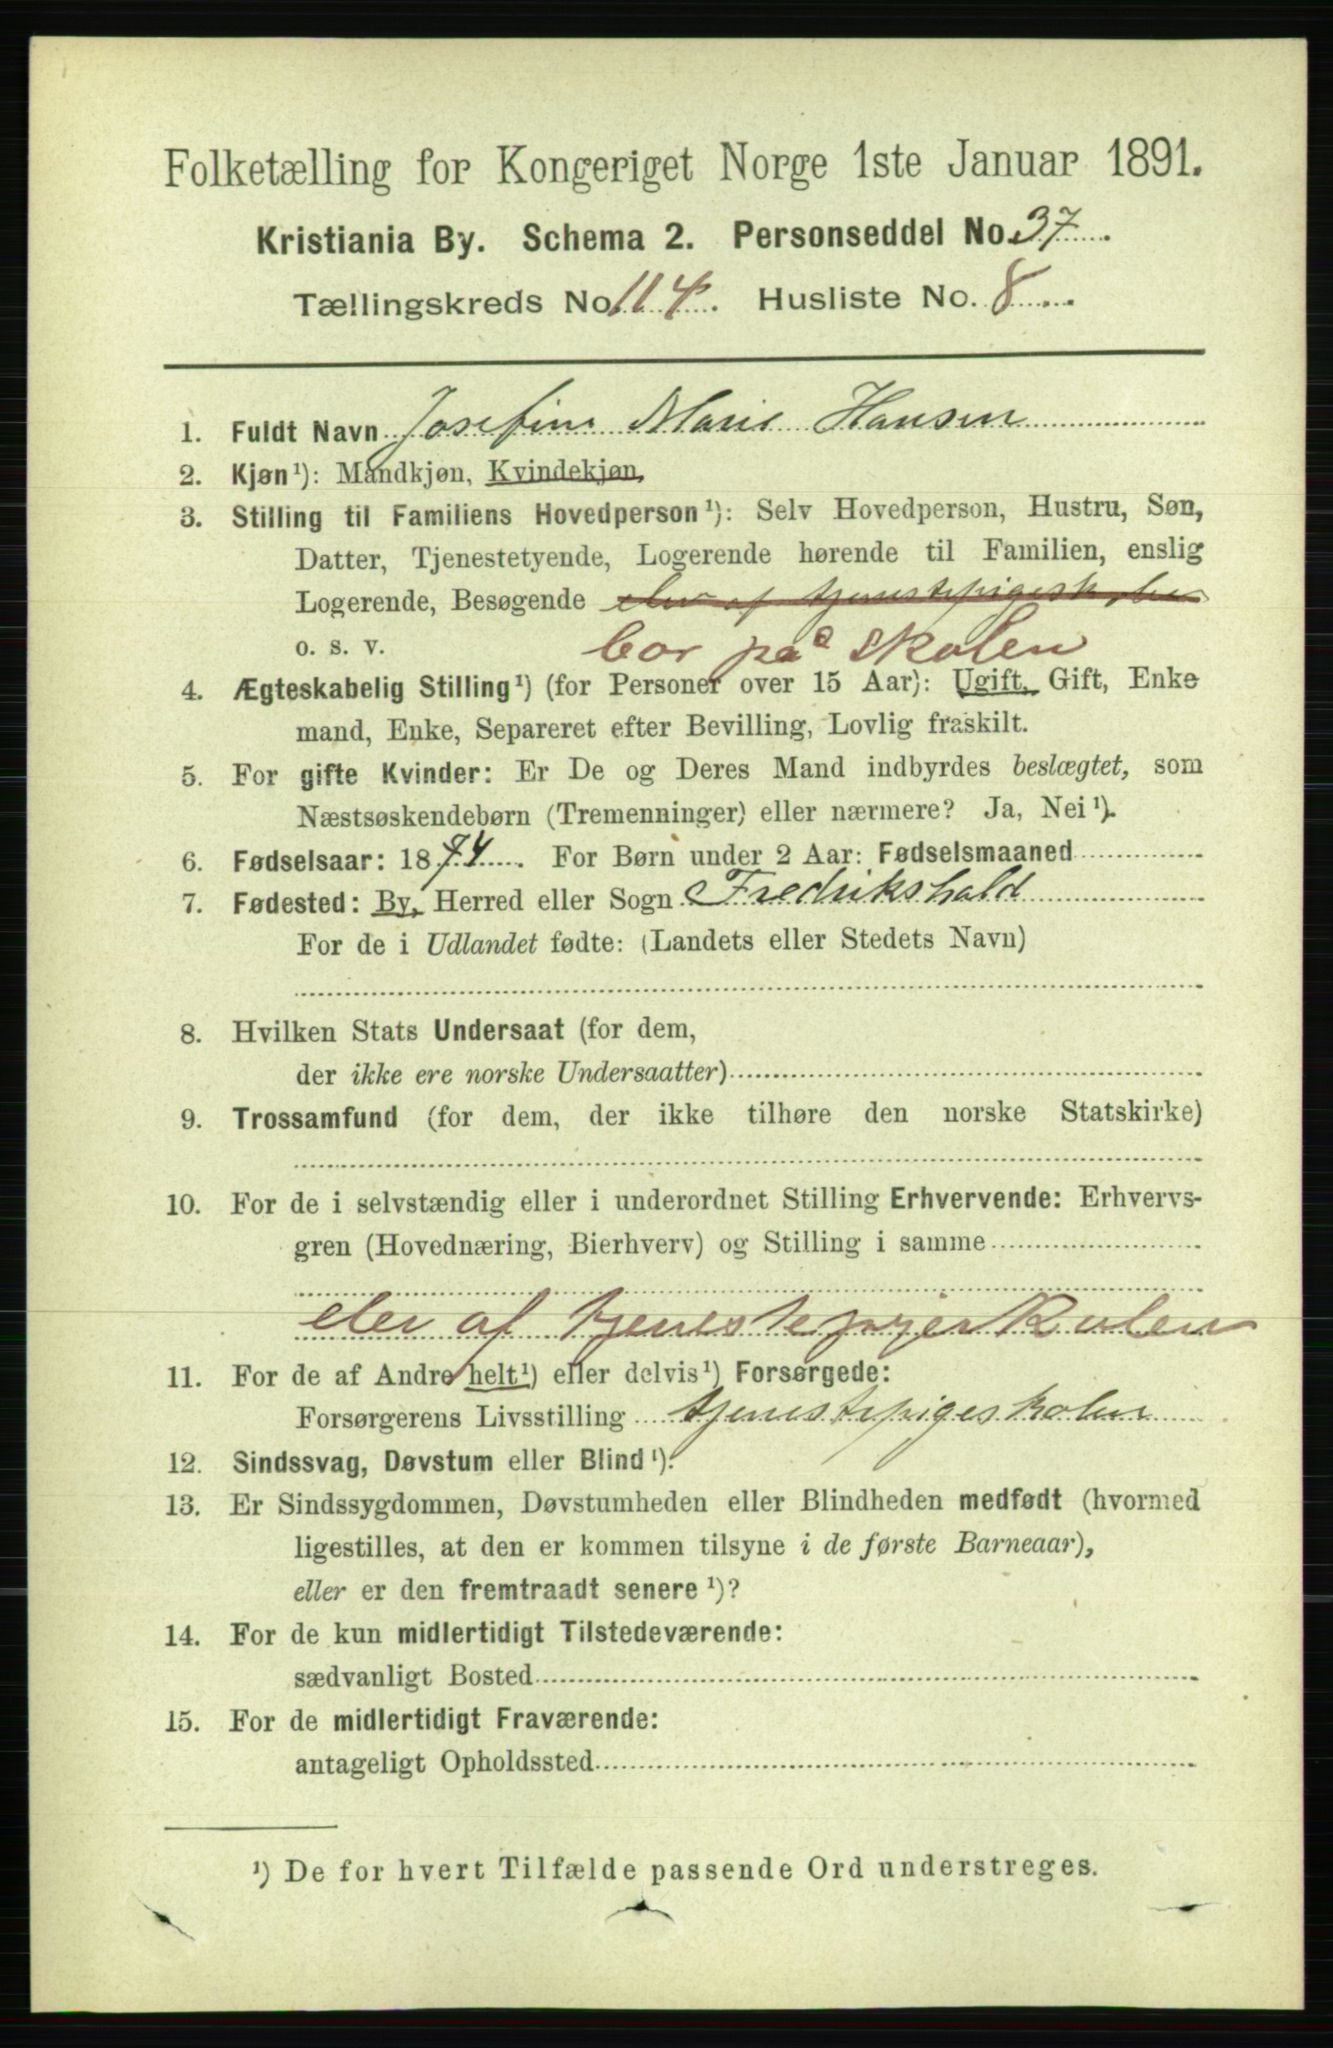 Folketælling for Kongeriget Norge 1ste Januar 1891.
Kristiania By. Schema 2. Personseddel No. 37
Tællingskreds No. 114. Husliste No. 8
1. Fuldt Navn Josefine Marie Hansen
2. Kjøn ¹): Mandkjøn, Kvindekjøn.
3. Stilling til Familiens Hovedperson ¹): Selv Hovedperson, Hustru, Søn,
Datter, Tjenestetyende, Logerende hørende til Familien, enslig
Logerende, Besøgende elev af tjenestepigeskolen
o. s. v. bor på skolen
4. Ægteskabelig Stilling ¹) (for Personer over 15 Aar): Ugift, Gift, Enke
mand, Enke, Separeret efter Bevilling, Lovlig fraskilt.
5. For gifte Kvinder: Er De og Deres Mand indbyrdes beslægtet, som
Næstsøskendebørn (Tremenninger) eller nærmere? Ja, Nei ¹).
6. Fødselsaar: 1874. For Børn under 2 Aar: Fødselsmaaned
7. Fødested: By, Herred eller Sogn Fredrikshald
For de i Udlandet fødte: (Landets eller Stedets Navn)
8. Hvilken Stats Undersaat (for dem,
der ikke ere norske Undersaatter)
9. Trossamfund (for dem, der ikke tilhøre den norske Statskirke)
10. For de i selvstændig eller i underordnet Stilling Erhvervende: Erhvervs-
gren (Hovednæring, Bierhverv) og Stilling i samme
elev af tjenestepigeskolen
11. For de af Andre helt ¹) eller delvis ¹) Forsørgede:
Forsørgerens Livsstilling tjenestepigeskolen
12. Sindssvag, Døvstum eller Blind ¹).
13. Er Sindssygdommen, Døvstumheden eller Blindheden medfødt (hvormed
ligestilles, at den er kommen tilsyne i de første Barneaar),
eller er den fremtraadt senere ¹)?
14. For de kun midlertidigt Tilstedeværende:
sædvanligt Bosted
15. For de midlertidigt Fraværende:
antageligt Opholdssted
¹) De for hvert Tilfælde passende Ord understreges.